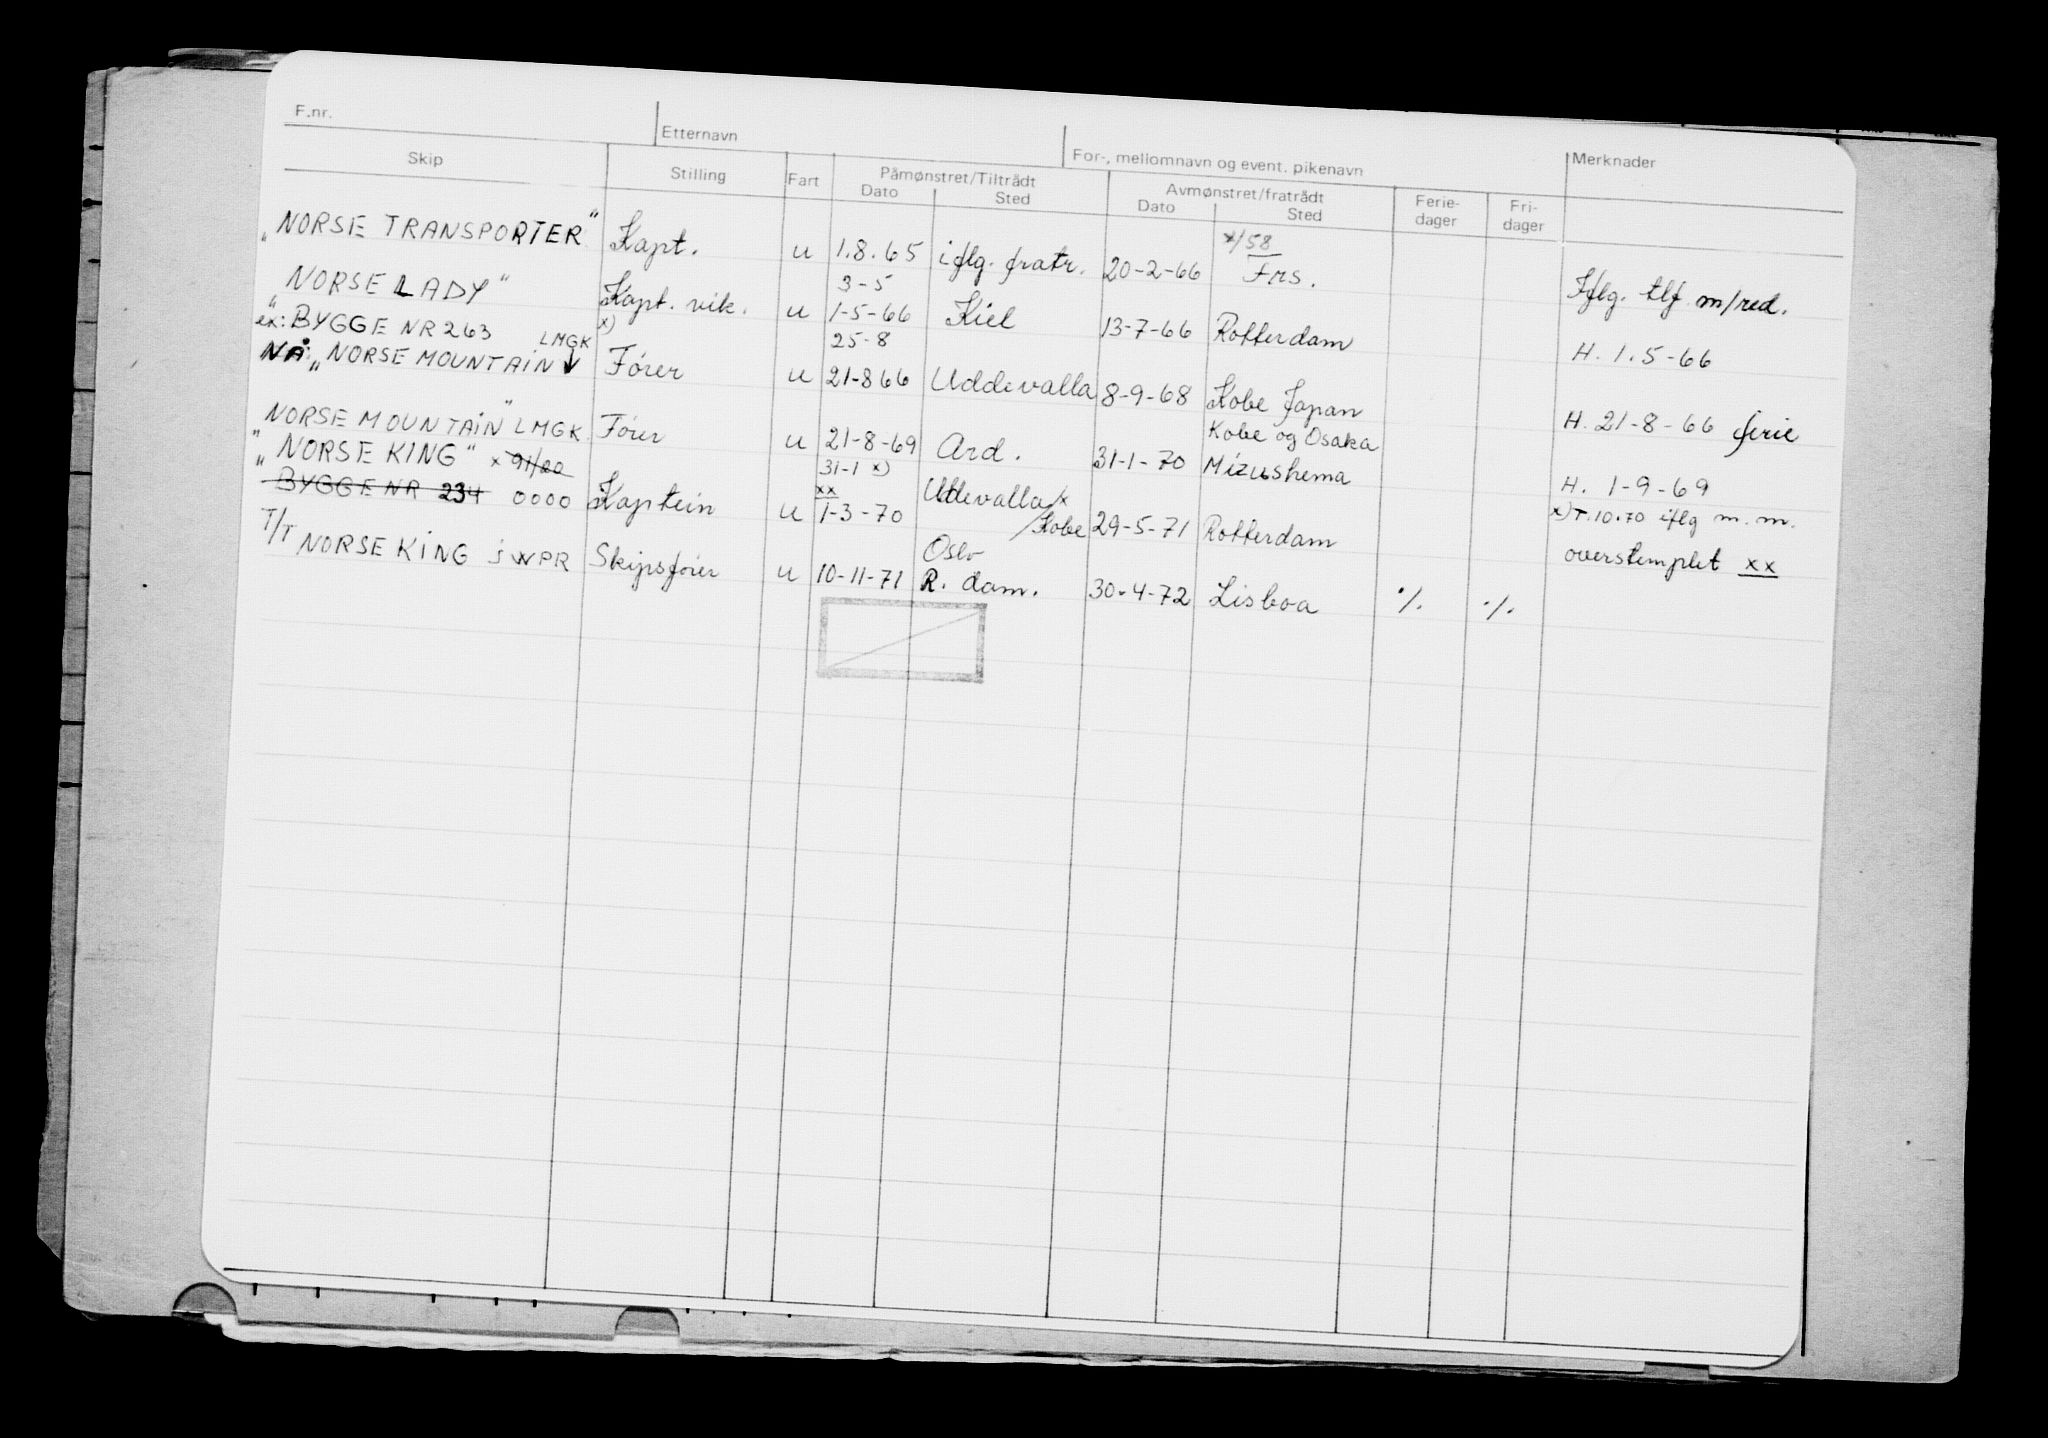 F.nr. Etternavn For-, mellomnavn og event. pikenavn Merknader
Skip Stilling Fart Påmønstret/Tiltrådt Avmønstret/fratrådt Ferie-dager Fri-dager
Dato Sted Dato Sted
x/58
"NORSE TRANSPORTER" Kapt. u 1.8.65 iflg. fratr. 20-2-66 Frs. Iflg. tlf m/red.
3-5
"NORSE LADY" Kapt. vik. u 1-5-66 Kiel 13-7-66 Rotterdam H. 1.5-66
ex: BYGGE NR 263 LMGK x) 25-8
NÅ: "NORSE MOUNTAIN Fører u 21-8 66 Uddevalla 8-9-68 Kobe Japan H. 21-8-66 ferie
Kobe og Osaka
NORSE MOUNTAIN" LMGK Fører u 21-8-69 Ard. 31-1-70 Mizushema H. 1-9-69
"NORSE KING" x 31-1 x) x) T.10.70 iflg m.m.
xx
BYGGE NR 234 0000 Kaptein u 1-3-70 /Kobe 29-5-71 Rotterdam overstemplet xx
Oslo
T/T NORSE KING JWPR Skipsfører u 10-11-71 R. dam. 30.4-72 Lisboa ./. ./.